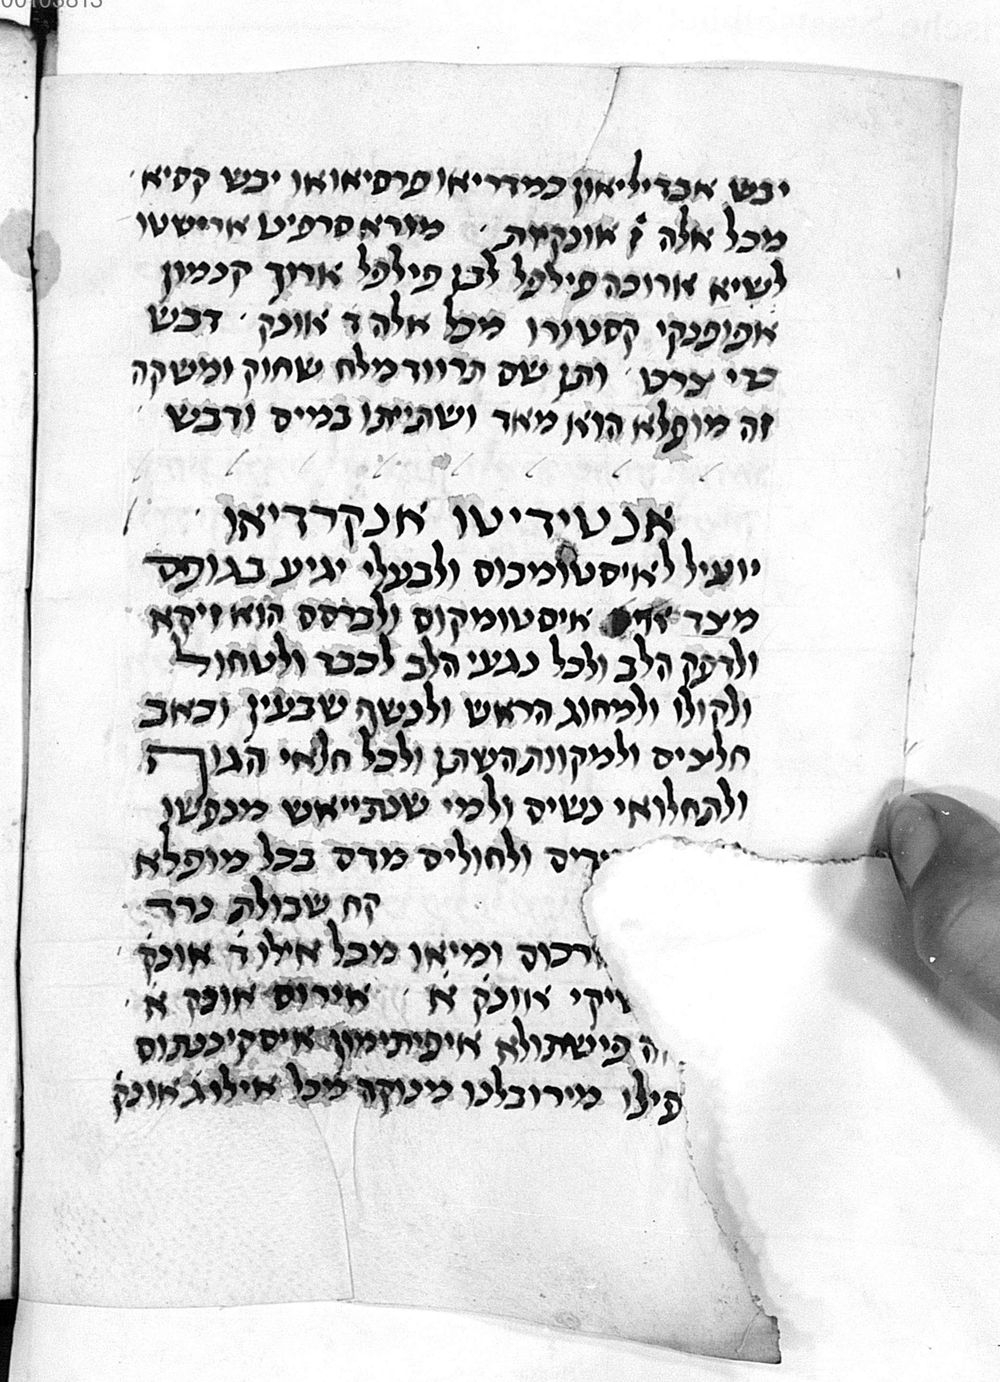 יבש אבדיליאון כמדריאו פרסיאו או יבש קסיא
מכל אלה ז אונקיות מורא סרפיט ארישטו
לשיא ארוכה פילפל לבן פילפל ארוך קנמון
אפופנקי קסטורו מכל אלה ד אונק דבש
כדי צרט ותן שם תרווד מלח שחוק ומשקה
זה מופלא הוא מאד ושתייתו במים ודבש
אנטידיטו אנקרדיאו
יועיל לאיסטומיכוס ולבעלי יגיע בגופם
מצד איסטומקוס ולברסם הוא זיקא
ולדפק הלב ולכל נגעי הלב לכבד ולטחול
ולקולו ולמחוג הראש ולנשף שבעין וכאב
חלצים ולמקוות השתן ולכל חלאי הגוף
ולתחלואי נשים ולמי שנתייאש מנפשו
ידים ולחולים מדם בכל מופלא
קח שבולת נרד
רכוס ומיאו מכל אילו ד אונק
יקי אוונק א אירוס אונק א
ה פישתולא איפיתימון איסקיננתוס
פילו מירובלנו מינוקה מכל אילו ג אונק